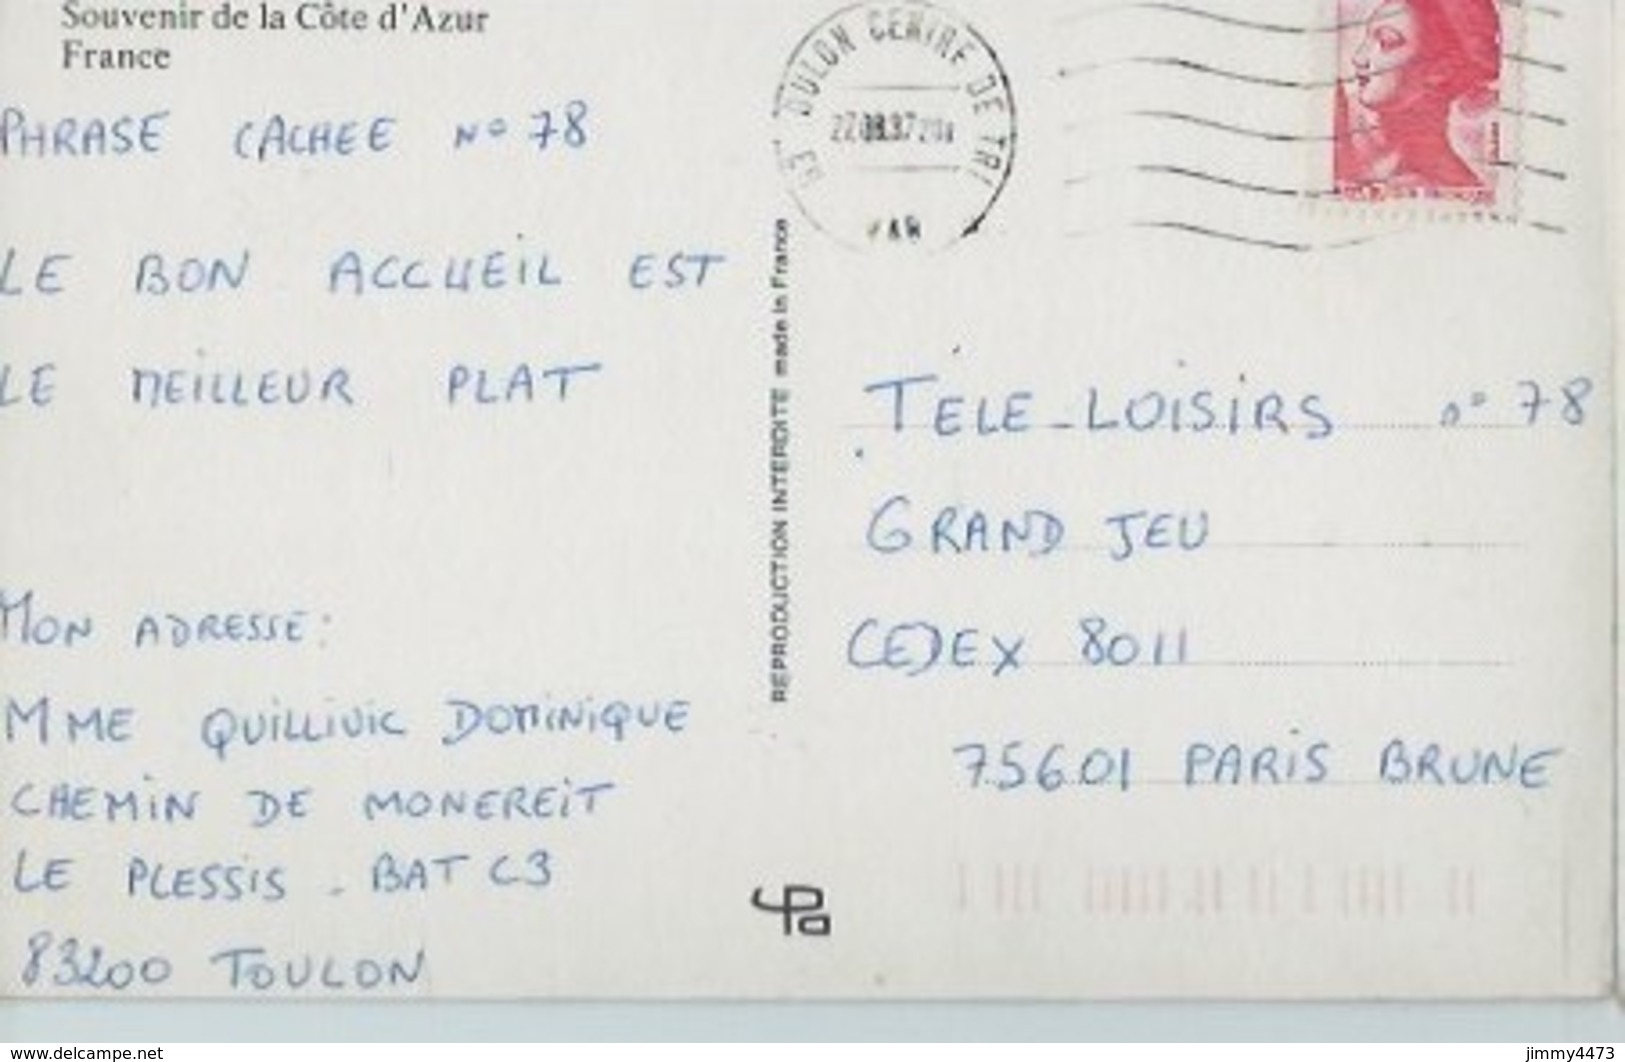 Souvenir de la Côte d'Azur
France
PHRASE CACHEE N° 78
LE BON ACCUEIL EST
LE MEILLEUR PLAT
MON ADRESSE:
MME QUILLIVIC DOMINIQUE
CHEMIN DE MONEREIT
LE PLESSIS - BAT C3
83200 TOULON
REPRODUCTION INTERDITE made in France
83 TOULON CENTRE DE TRI
VAR
TELE-LOISIRS n° 78
GRAND JEU
CEDEX 8011
75601 PARIS BRUNE
www.delcampe.net
jimmy4473